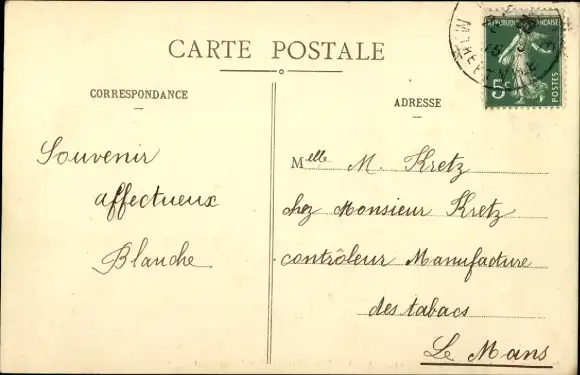 CARTE POSTALE
CORRESPONDANCE
ADRESSE
REPUBLIQUE FRANÇAISE
5c
POSTES
Souvenir
affectueux
Blanche
Melle M. Kretz
chez Monsieur Kretz
contrôleur Manufacture
des tabacs
Le Mans